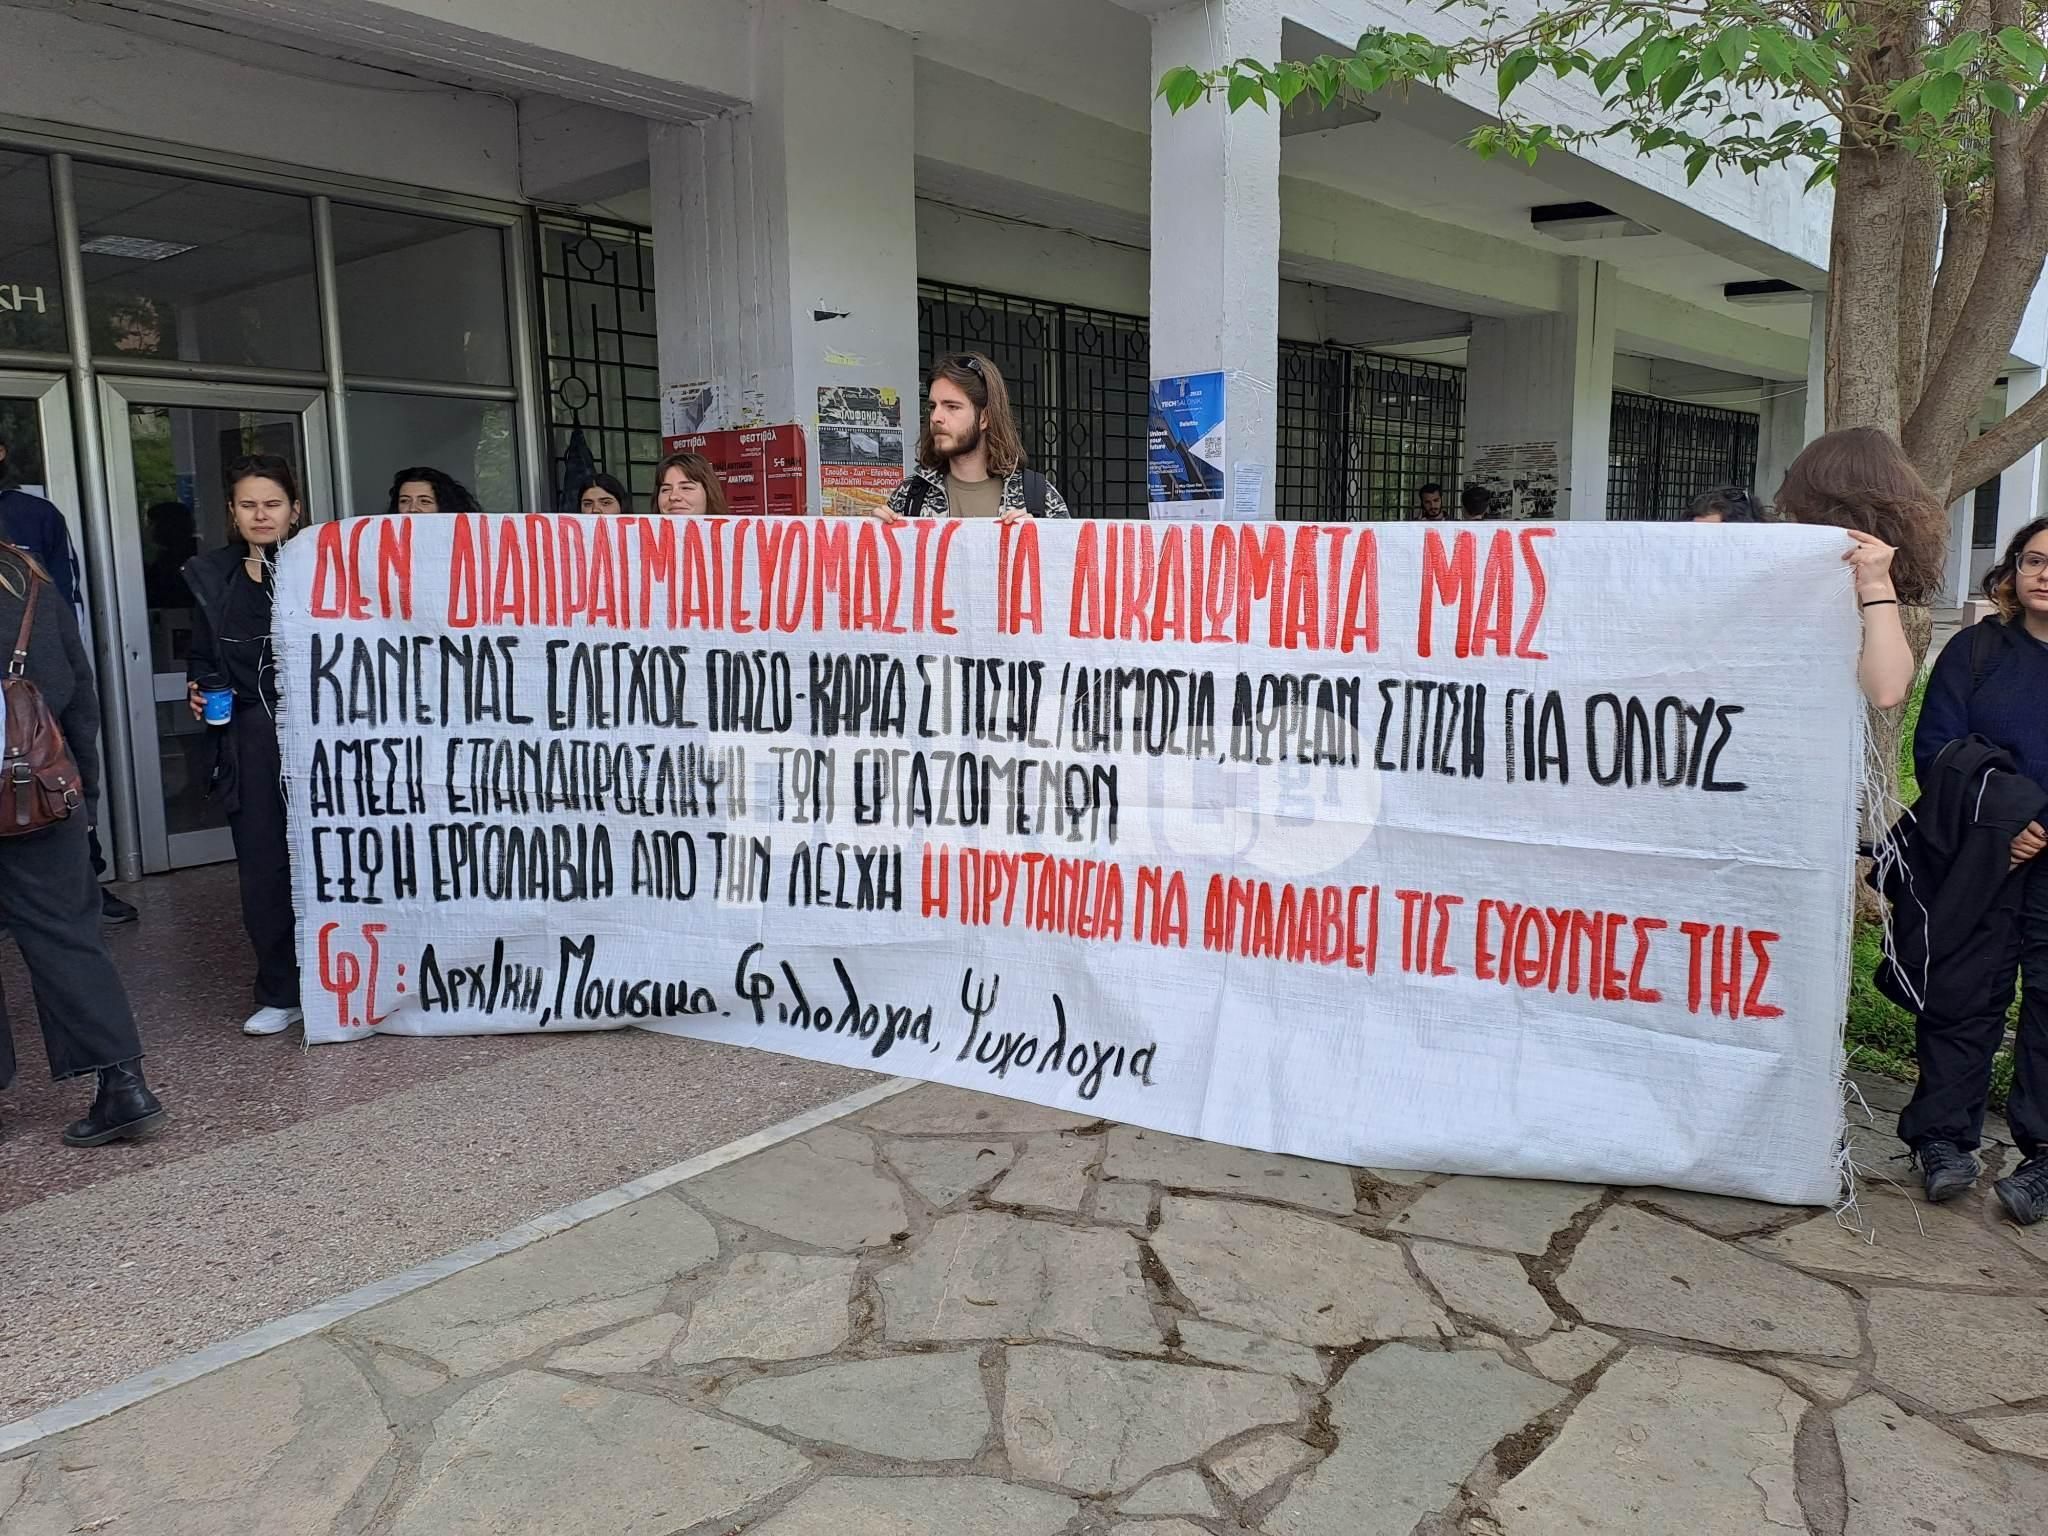 ΚΗ
TECHSALONIKI
Deloitte
Unlock
your
future
φεστιβάλ
φεστιβάλ
5-6 ΜΑΗ
ΑΝΑΤΡΟΠΗ
Σπουδές - Ζωή - Ελευθερίες
ΔΕΝ ΔΙΑΠΡΑΓΜΑΤΕΥΟΜΑΣΤΕ ΤΑ ΔΙΚΑΙΩΜΑΤΑ ΜΑΣ
ΚΑΝΕΝΑΣ ΕΛΕΓΧΟΣ ΠΑΣΟ-ΚΑΡΤΑ ΣΙΤΙΣΗΣ/ΔΗΜΟΣΙΑ, ΔΩΡΕΑΝ ΣΙΤΙΣΗ ΓΙΑ ΟΛΟΥΣ
ΑΜΕΣΗ ΕΠΑΝΑΠΡΟΣΛΗΨΗ ΤΩΝ ΕΡΓΑΖΟΜΕΝΩΝ
ΕΞΩ Η ΕΡΓΟΛΑΒΙΑ ΑΠΟ ΤΗΝ ΛΕΣΧΗ Η ΠΡΥΤΑΝΕΙΑ ΝΑ ΑΝΑΛΑΒΕΙ ΤΙΣ ΕΥΘΥΝΕΣ ΤΗΣ
Φ.Σ: Αρχ/κη, Μουσικο, Φιλολογια, Ψυχολογια